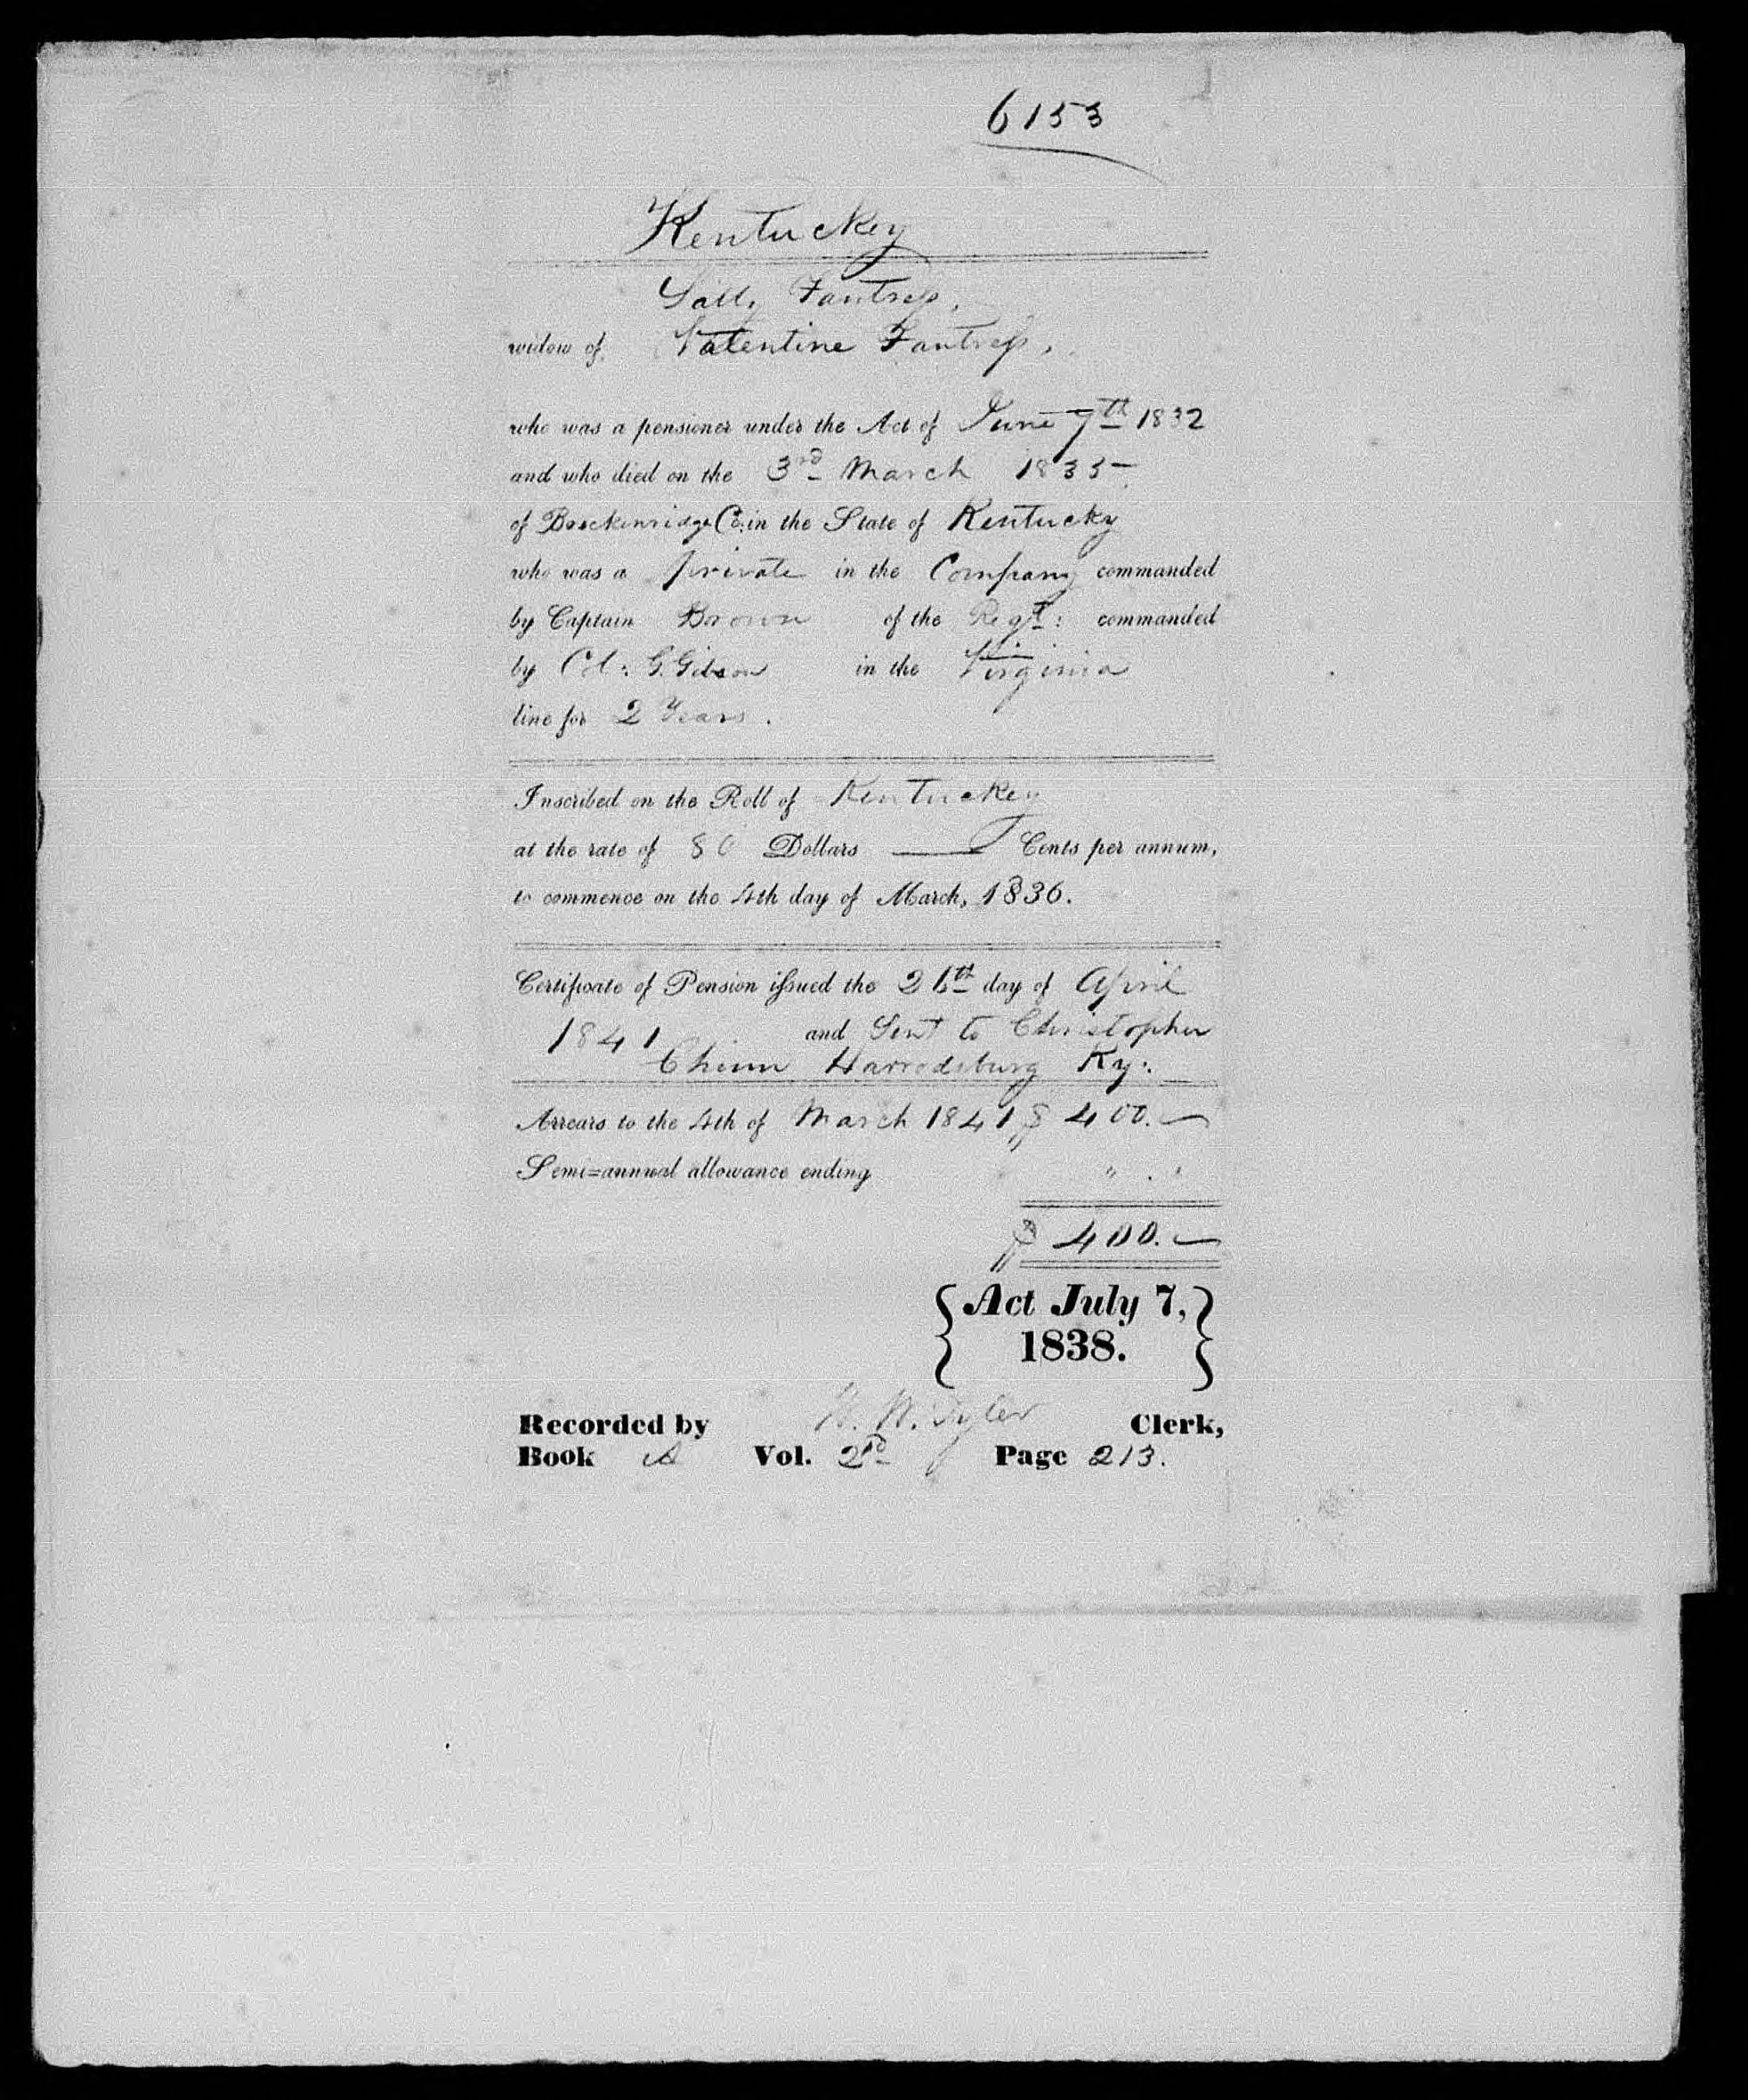 6153
Kentucky
Sally Fantress,
widow of Valentine Fantress,
who was a pensioner under the Act of June 7th 1832
and who died on the 3rd March 1835
of Breckenridge Co: in the State of Kentucky
who was a private in the Company commanded
by Captain Brown of the Regt: commanded
by Col: G. Gibson in the Virginia
line for 2 Years.
Inscribed on the Roll of Kentucky
at the rate of 80 Dollars — Cents per annum,
to commence on the 4th day of March, 1836.
Certificate of Pension issued the 26th day of April
1841 and Sent to Christopher
Chinn Harrodsburg Ky:
Arrears to the 4th of March 1841 $ 400.—
Semi=annual allowance ending " . "
$ 400.—
{Act July 7,}
1838.
Recorded by W. Tyler Clerk,
Book A Vol. 2d Page 213.